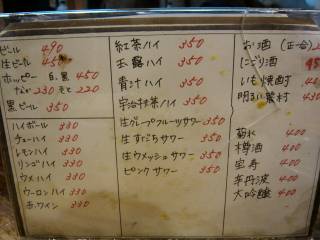 ビール 490
生ビール 450
ホッピー 白.黒 450
なか 230 そと 220
黒ビール 350
ハイボール 330
チューハイ 330
レモンハイ 330
リンゴハイ 330
ウメハイ 330
ウーロンハイ 330
赤.ワイン 330
紅茶ハイ 350
玉露ハイ 350
青汁ハイ 350
宇治抹茶ハイ 350
生グレープフルーツサワー 350
生すだちサワー 350
生ウメッシュサワー 350
ピンクサワー 350
お酒 (正一合)
にごり酒
いも焼酎
明るい農村 430
菊水 400
樽酒 400
宝寿 400
辛丹波 400
大吟醸 400